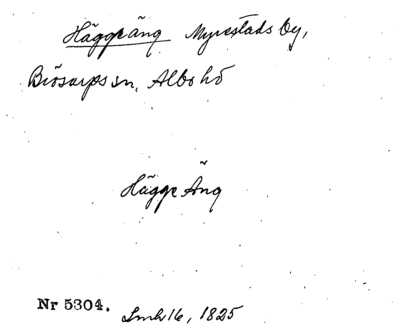 Häggeäng Myrestads by,
Brösarps sn, Albo hd
Hägge Äng
Nr 5304. Lmh 16, 1825